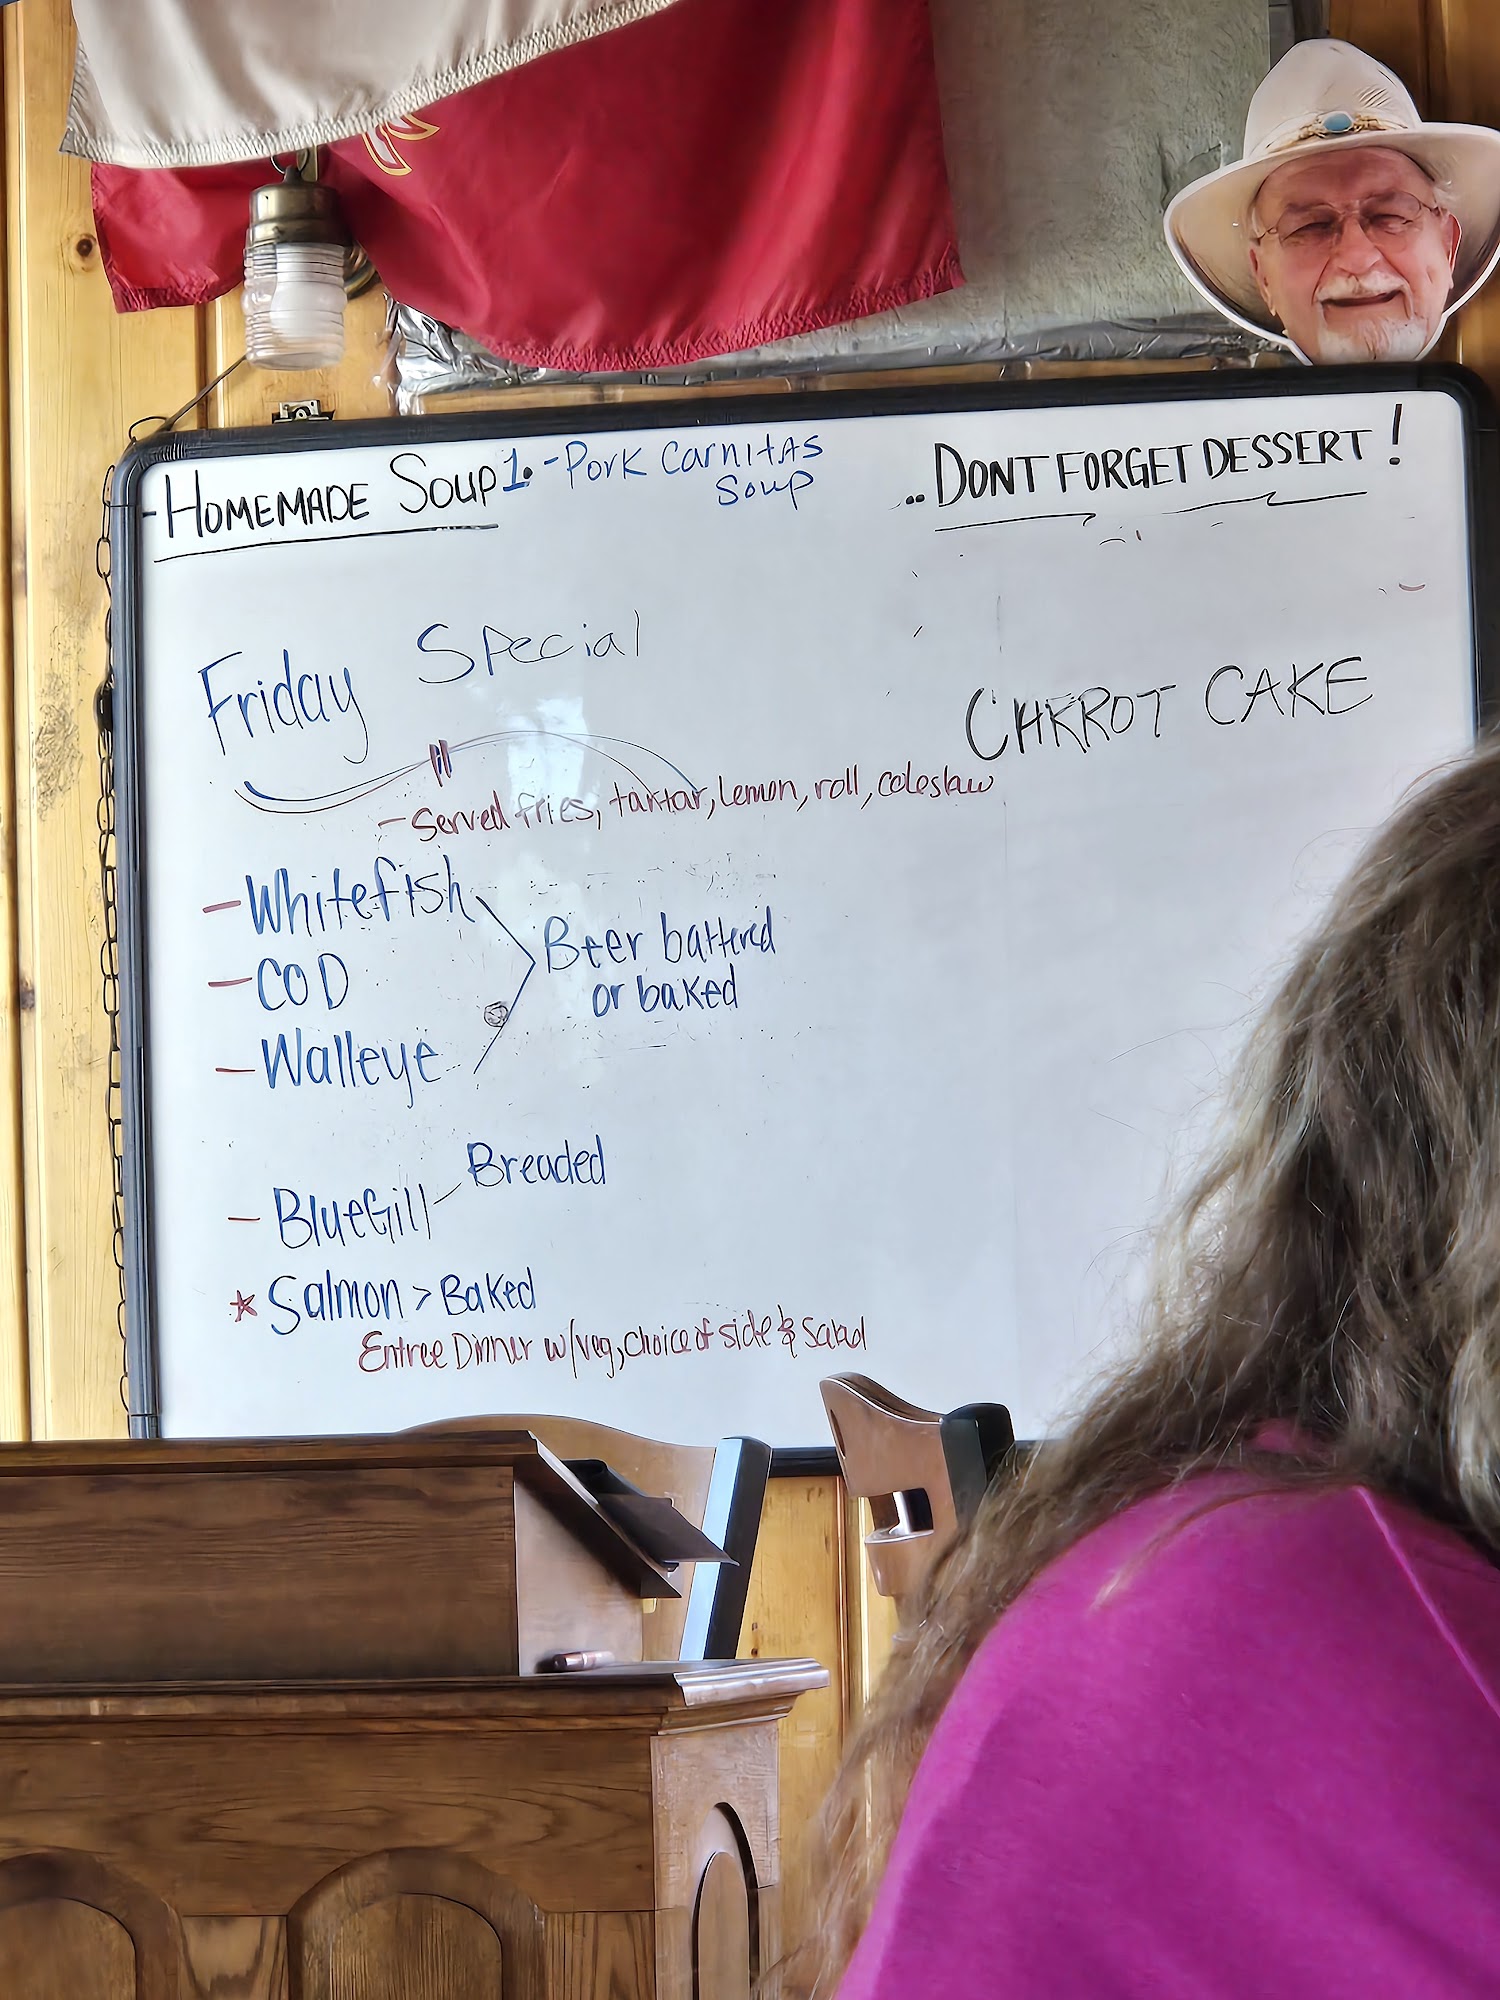 -HOMEMADE SOUP 1. -Pork Carnitas
Soup
..DONT FORGET DESSERT!
Friday Special
-Served fries, tartar, lemon, roll, coleslaw
CARROT CAKE
-Whitefish
-COD
-Walleye
Beer battered
or baked
-BlueGill - Breaded
*Salmon > Baked
Entree Dinner w/veg, choice of side & Salad